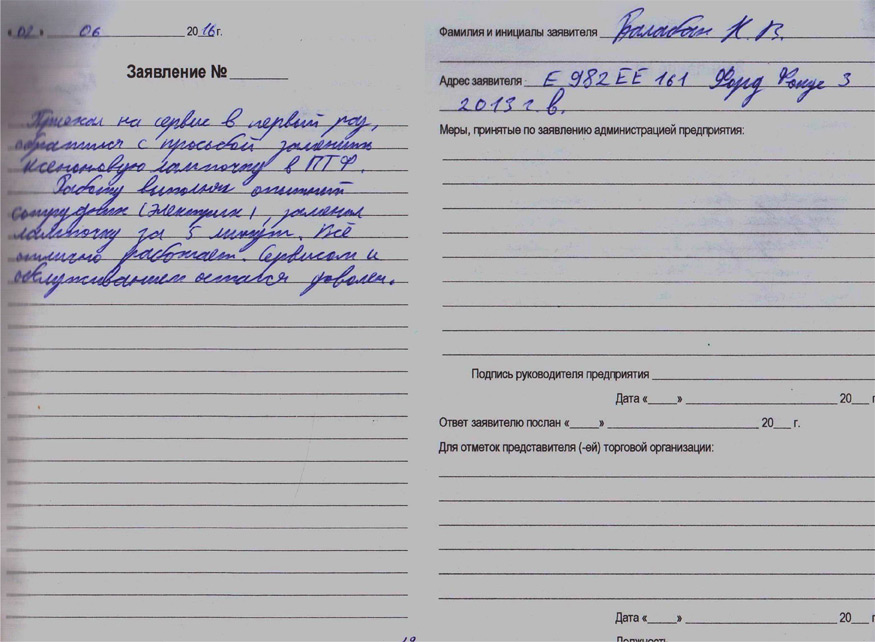 «02» 06 2016 г.
Заявление №
Приехал на сервис в первый раз,
обратился с просьбой заменить
ксеноновую лампочку в ПТФ.
Работу выполнял опытный
сотрудник (электрик), заменил
лампочку за 5 минут. Всё
отлично работает. Сервисом и
обслуживанием остался доволен.
Фамилия и инициалы заявителя Балабан К. В.
Адрес заявителя Е 982 ЕЕ 161 Форд Фокус 3
2013 г. в.
Меры, принятые по заявлению администрацией предприятия:
Подпись руководителя предприятия
Дата «___» 20___ г
Ответ заявителю послан «___» 20___ г.
Для отметок представителя (-ей) торговой организации:
Дата «___» 20___ г
Должность